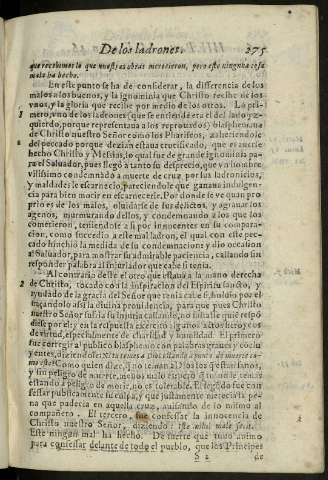 De los ladrones. 275
que recebimos lo que nuestras obras merecieron, pero este ninguna cosa
mala ha hecho.
En este punto se ha de considerar, la differencia de los
malos a los buenos, y la ignominia que Christo recibe de los
vnos, y la gloria que recibe por medio de los otros. Lo pri-
1 mero, vno de los ladrones (que se entiende era el del lado yz-
quierdo, porque representaua a los reprouados) blasphemaua
de Christo nuestro Señor como los Phariseos, zahiriendole
del peccado porque dezian estaua crucificado, que era auerse
hecho Christo, y Messias, lo qual fue de grande ignominia pa-
ra el Salvador, pues llegó a tanto su desprecio, que vn hombre
vilissimo condemnado a muerte de cruz por sus ladronicios,
y maldades le escarnecio, pareciendole que ganaua indulgen-
cia para bien morir en escarnecerle. Por donde se ve quan pro-
prio es de los malos, oluidarse de sus delictos, y agrauar los
agenos, murmurando dellos, y condemnando a los que los
cometieron, teniendose a si por innocentes en su compara-
cion, como succedio a este mal ladron, el qual con este pec-
cado hinchio la medida de su condemnacion y dio occasion
al Salvador, para mostrar su admirable paciencia, callando sin
responder palabra al injuriador que cabe si tenia.
Al contrario deste el otro que estaua a la mano derecha
2 de Christo, tocado con la inspiracion del Espiritu sancto, y
ayudado de la gracia del Señor que tenia cabe si, boluio por el
traçandolo assi la diuina prouidencia, para que pues Christo
nuestro Señor sufria su injuria callando, no faltasse quien respõ
diesse por el, y en la respuesta exercitó algunos actos heroycos
de virtud, especialmente de charidad y humildad. El primero
fue corregir a publico blasphemo con palabras graues y conclu
yentes, diziendole: Ni tu temes a Dios estando a punto de muerte co-
mo este? Como quien dize, si no temen a Dios los que estan sanos,
y sin peligro de muerte, menos malo es; pero q̃ tu no le temas
estando a peligro de morir, no es tolerable. El segũdo fue con
fessar publicamente su culpa, y que justamente merecia la pe-
na que padecia en aquella cruz, auisando de lo mismo al
compañero. El tercero, fue confessar la innocencia de
Christo nuestro Señor, diziendo: este nihil male fecit.
Este ningun mal ha hecho. De suerte que tuuo animo
para confessar delante de todo el pueblo, que los Principes
S 2 de